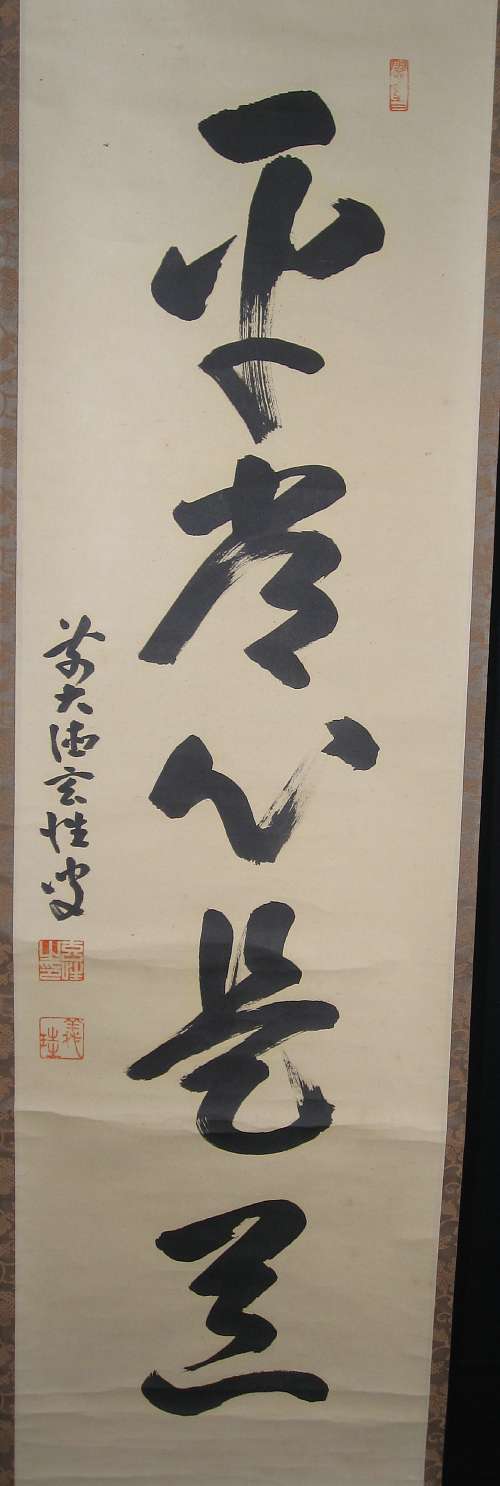 平常心是道
前大徳玄性叟